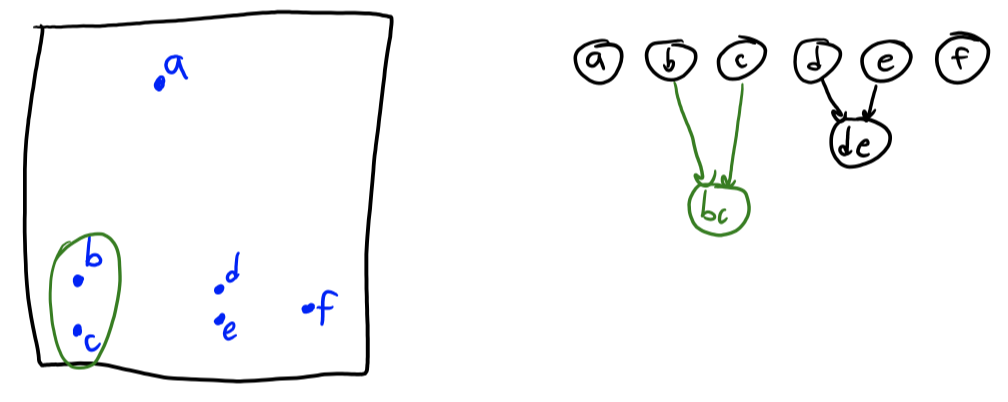 a
b
c
d
e
f
a b c d e f
de
bc